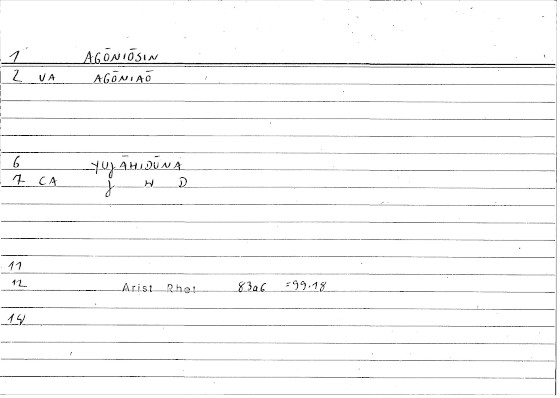 1 AGŌNIŌSIN
2 VA AGŌNIAŌ
6 YUǰĀHIDŪNA
7 CA ǰ H D
11
12 Arist Rhet 83a6 =99.18
14